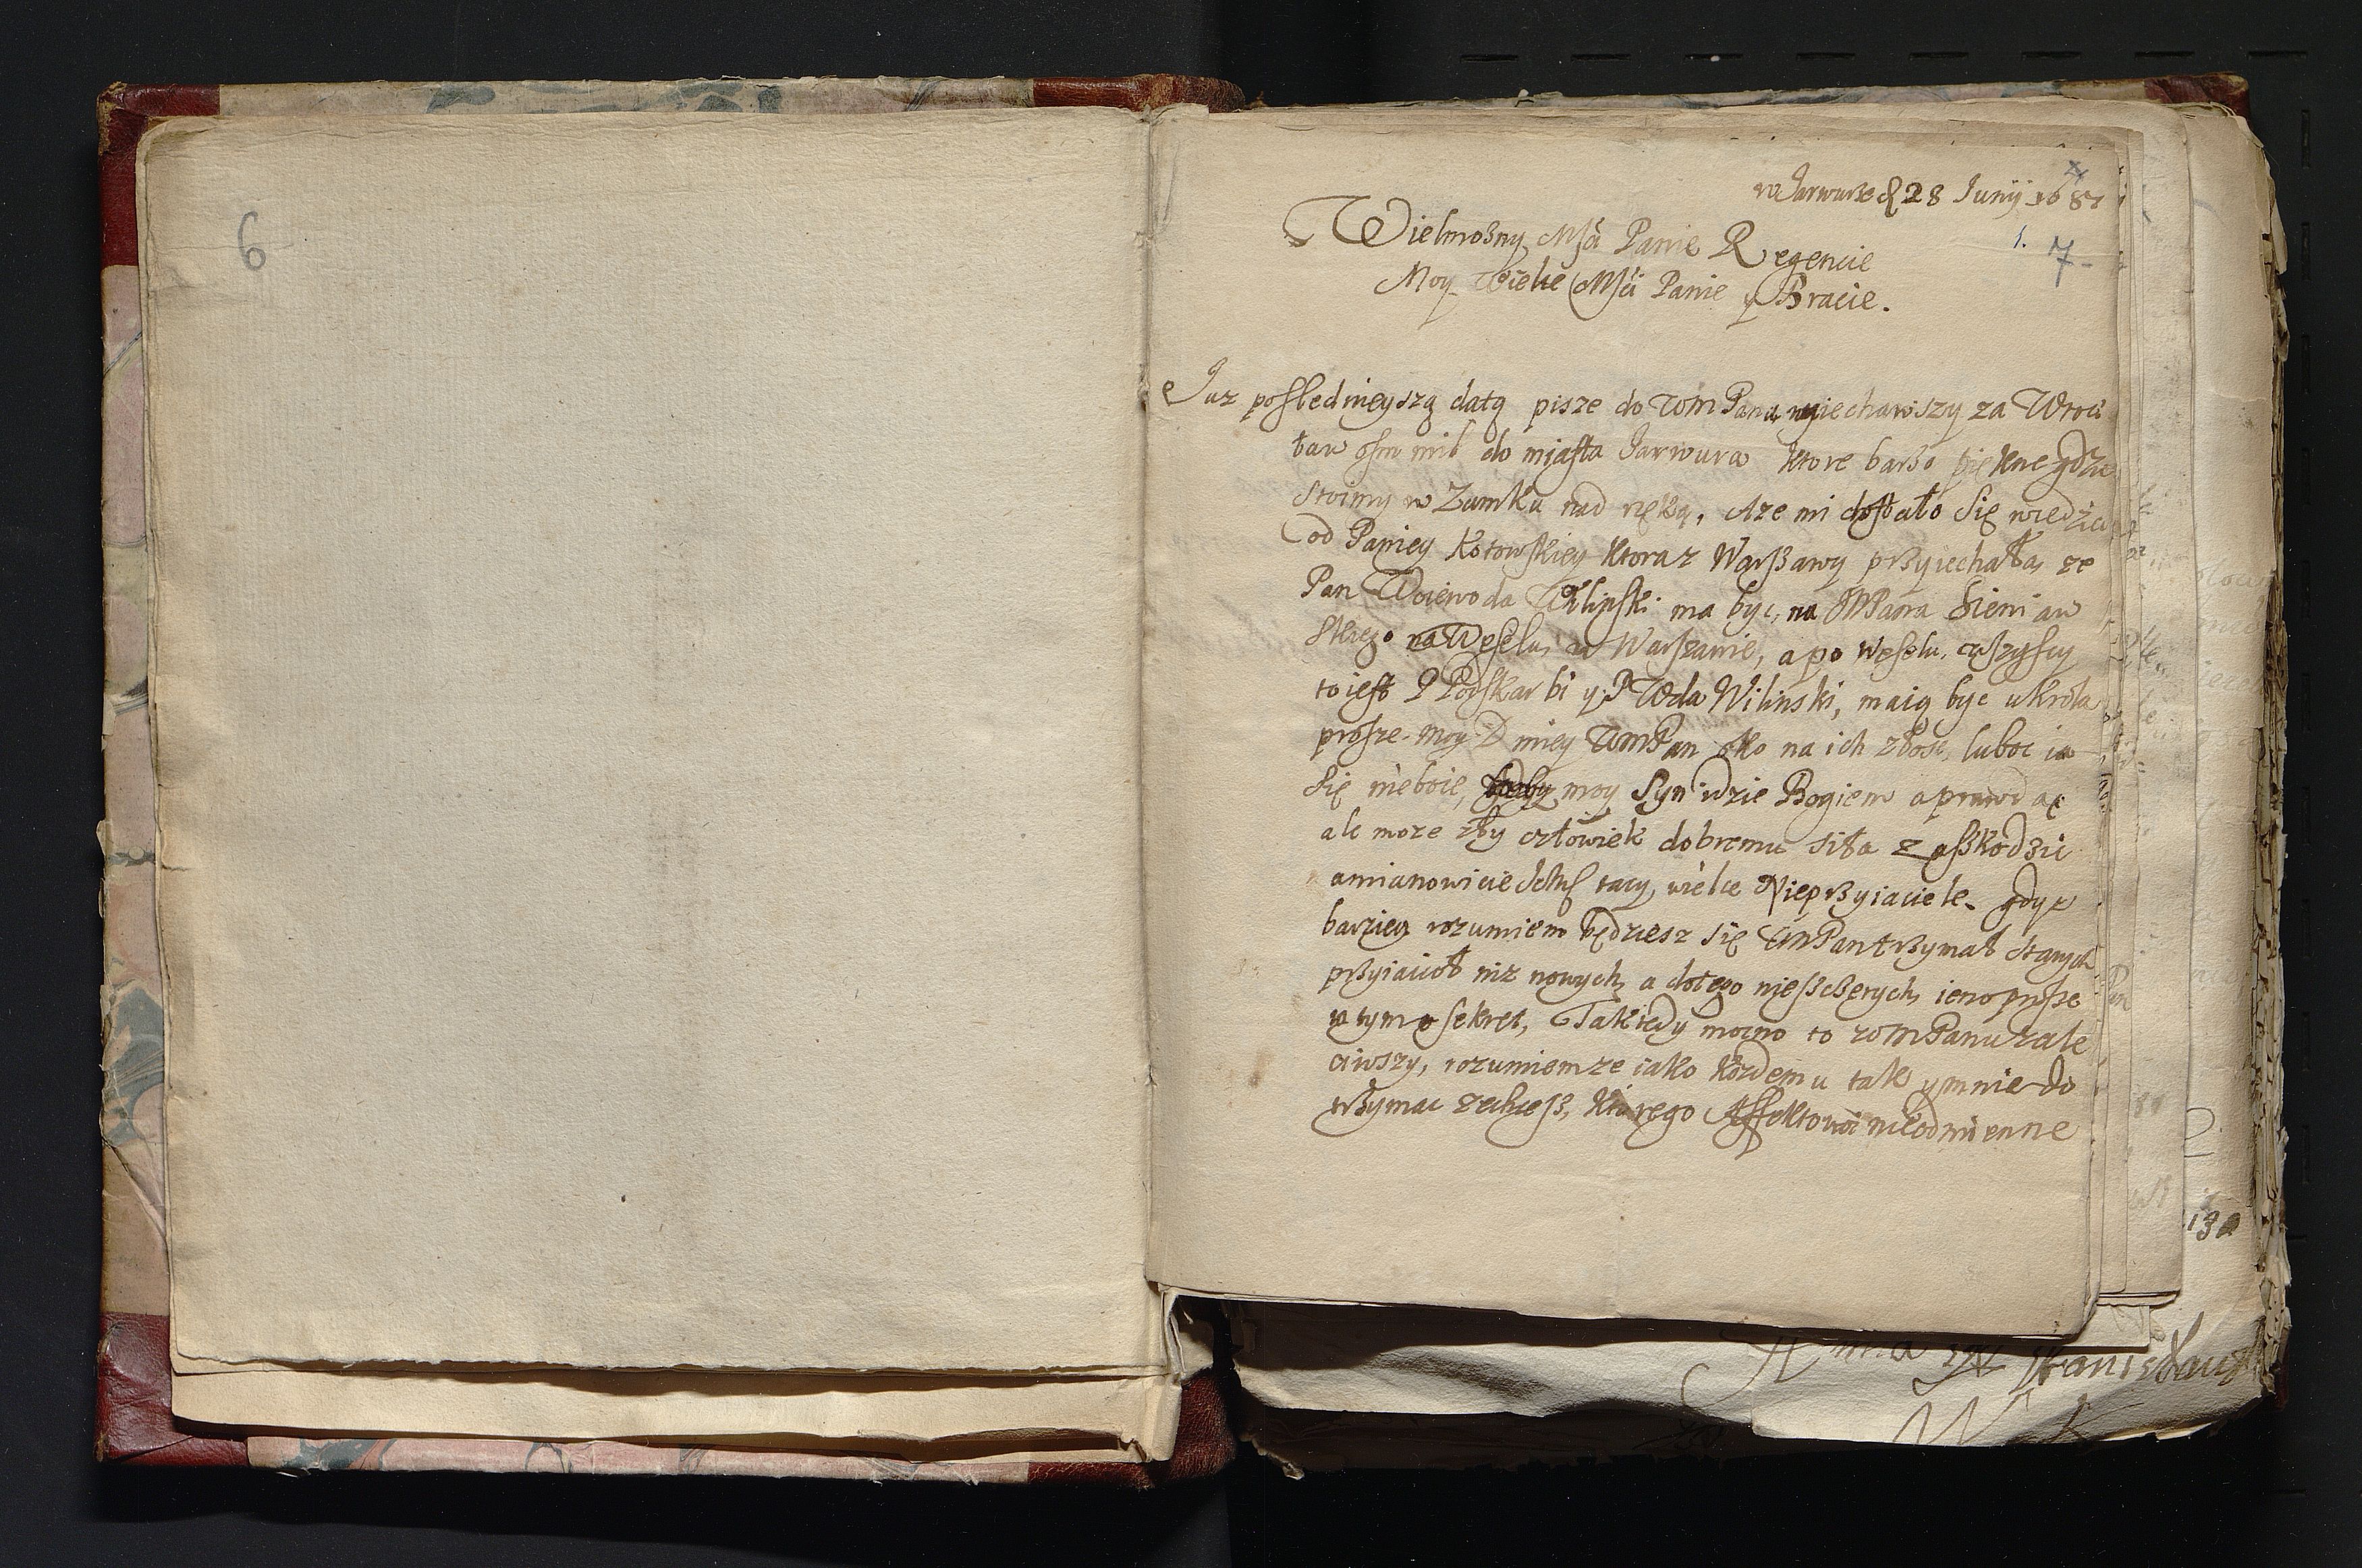 6
w Jarwurze d 28 Junij 1687
1. 7
Wielmozny Msci Panie Regencie
Moy Wielce Msci Panie y Bracie.
Juz poslednieyszą datą pisze do WMPana wyiechawszy za Wroc
ław osm mil do miasta Jarwura ktore barzo piękne gdzie
stoimy w Zamku nad rzeką, Aze mi dostało się wiedziec
od Paniey Kotowskiey ktora z Warszawy przyiechała, ze
Pan Woiewoda Wilinski ma byc, na JMPana Sieniaw
skiego na Weselu, w Warszawie, a po weselu, wszyscy
to iest P Podskarbi y P Wda Wilinski, maią byc u Krola
prosze moy D miey WMPan oko na ich złosc, luboc ia
się nieboie, moy Syn idzie Bogiem a prawdą
ale moze zły człowiek dobremu siła zaszkodzic
amianowicie tacy, wielce Nieprzyiaciele. gdyz
barziey rozumiem będziesz się WMPan trzymał starych
przyiacioł niz nowych, a dotego nieszczerych, ieno prosze
w tym o sekret, Tak tedy mocno to WMPanu zale
ciwszy, rozumiem ze iako kozdemu tak y mnie do
trzymac zechcesz, ktorego Affektowi nieodmienne
130
Stanisław